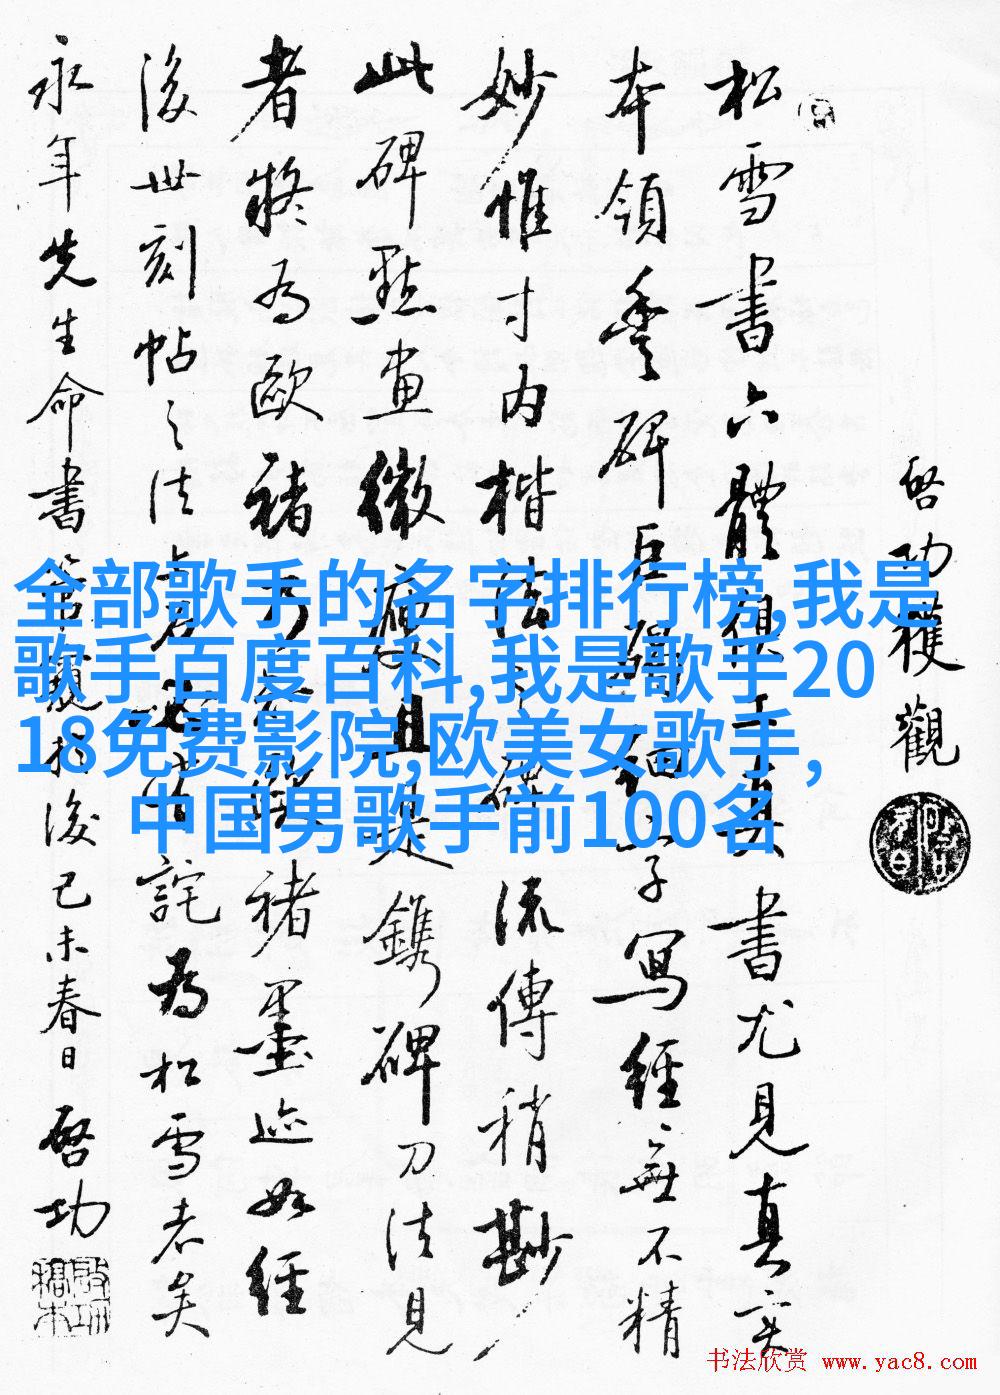 全部歌手的名字排行榜,我是
歌手百度百科,我是歌手20
18免费影院,欧美女歌手,
中国男歌手前100名
啓功獲觀
松雪書六體俱工真書尤見真實
本領豐碑巨碣細字寫經無不精
妙惟寸内楷法之碑流傳稍尠
此碑點畫微瘦且是鐫碑刀法見
者擬為歐褚褚墨迹如經
後世刻帖之法詫為松雪老矣
永年先生命書管窺於後己未春日啓功
书法欣赏 www.yac8.com